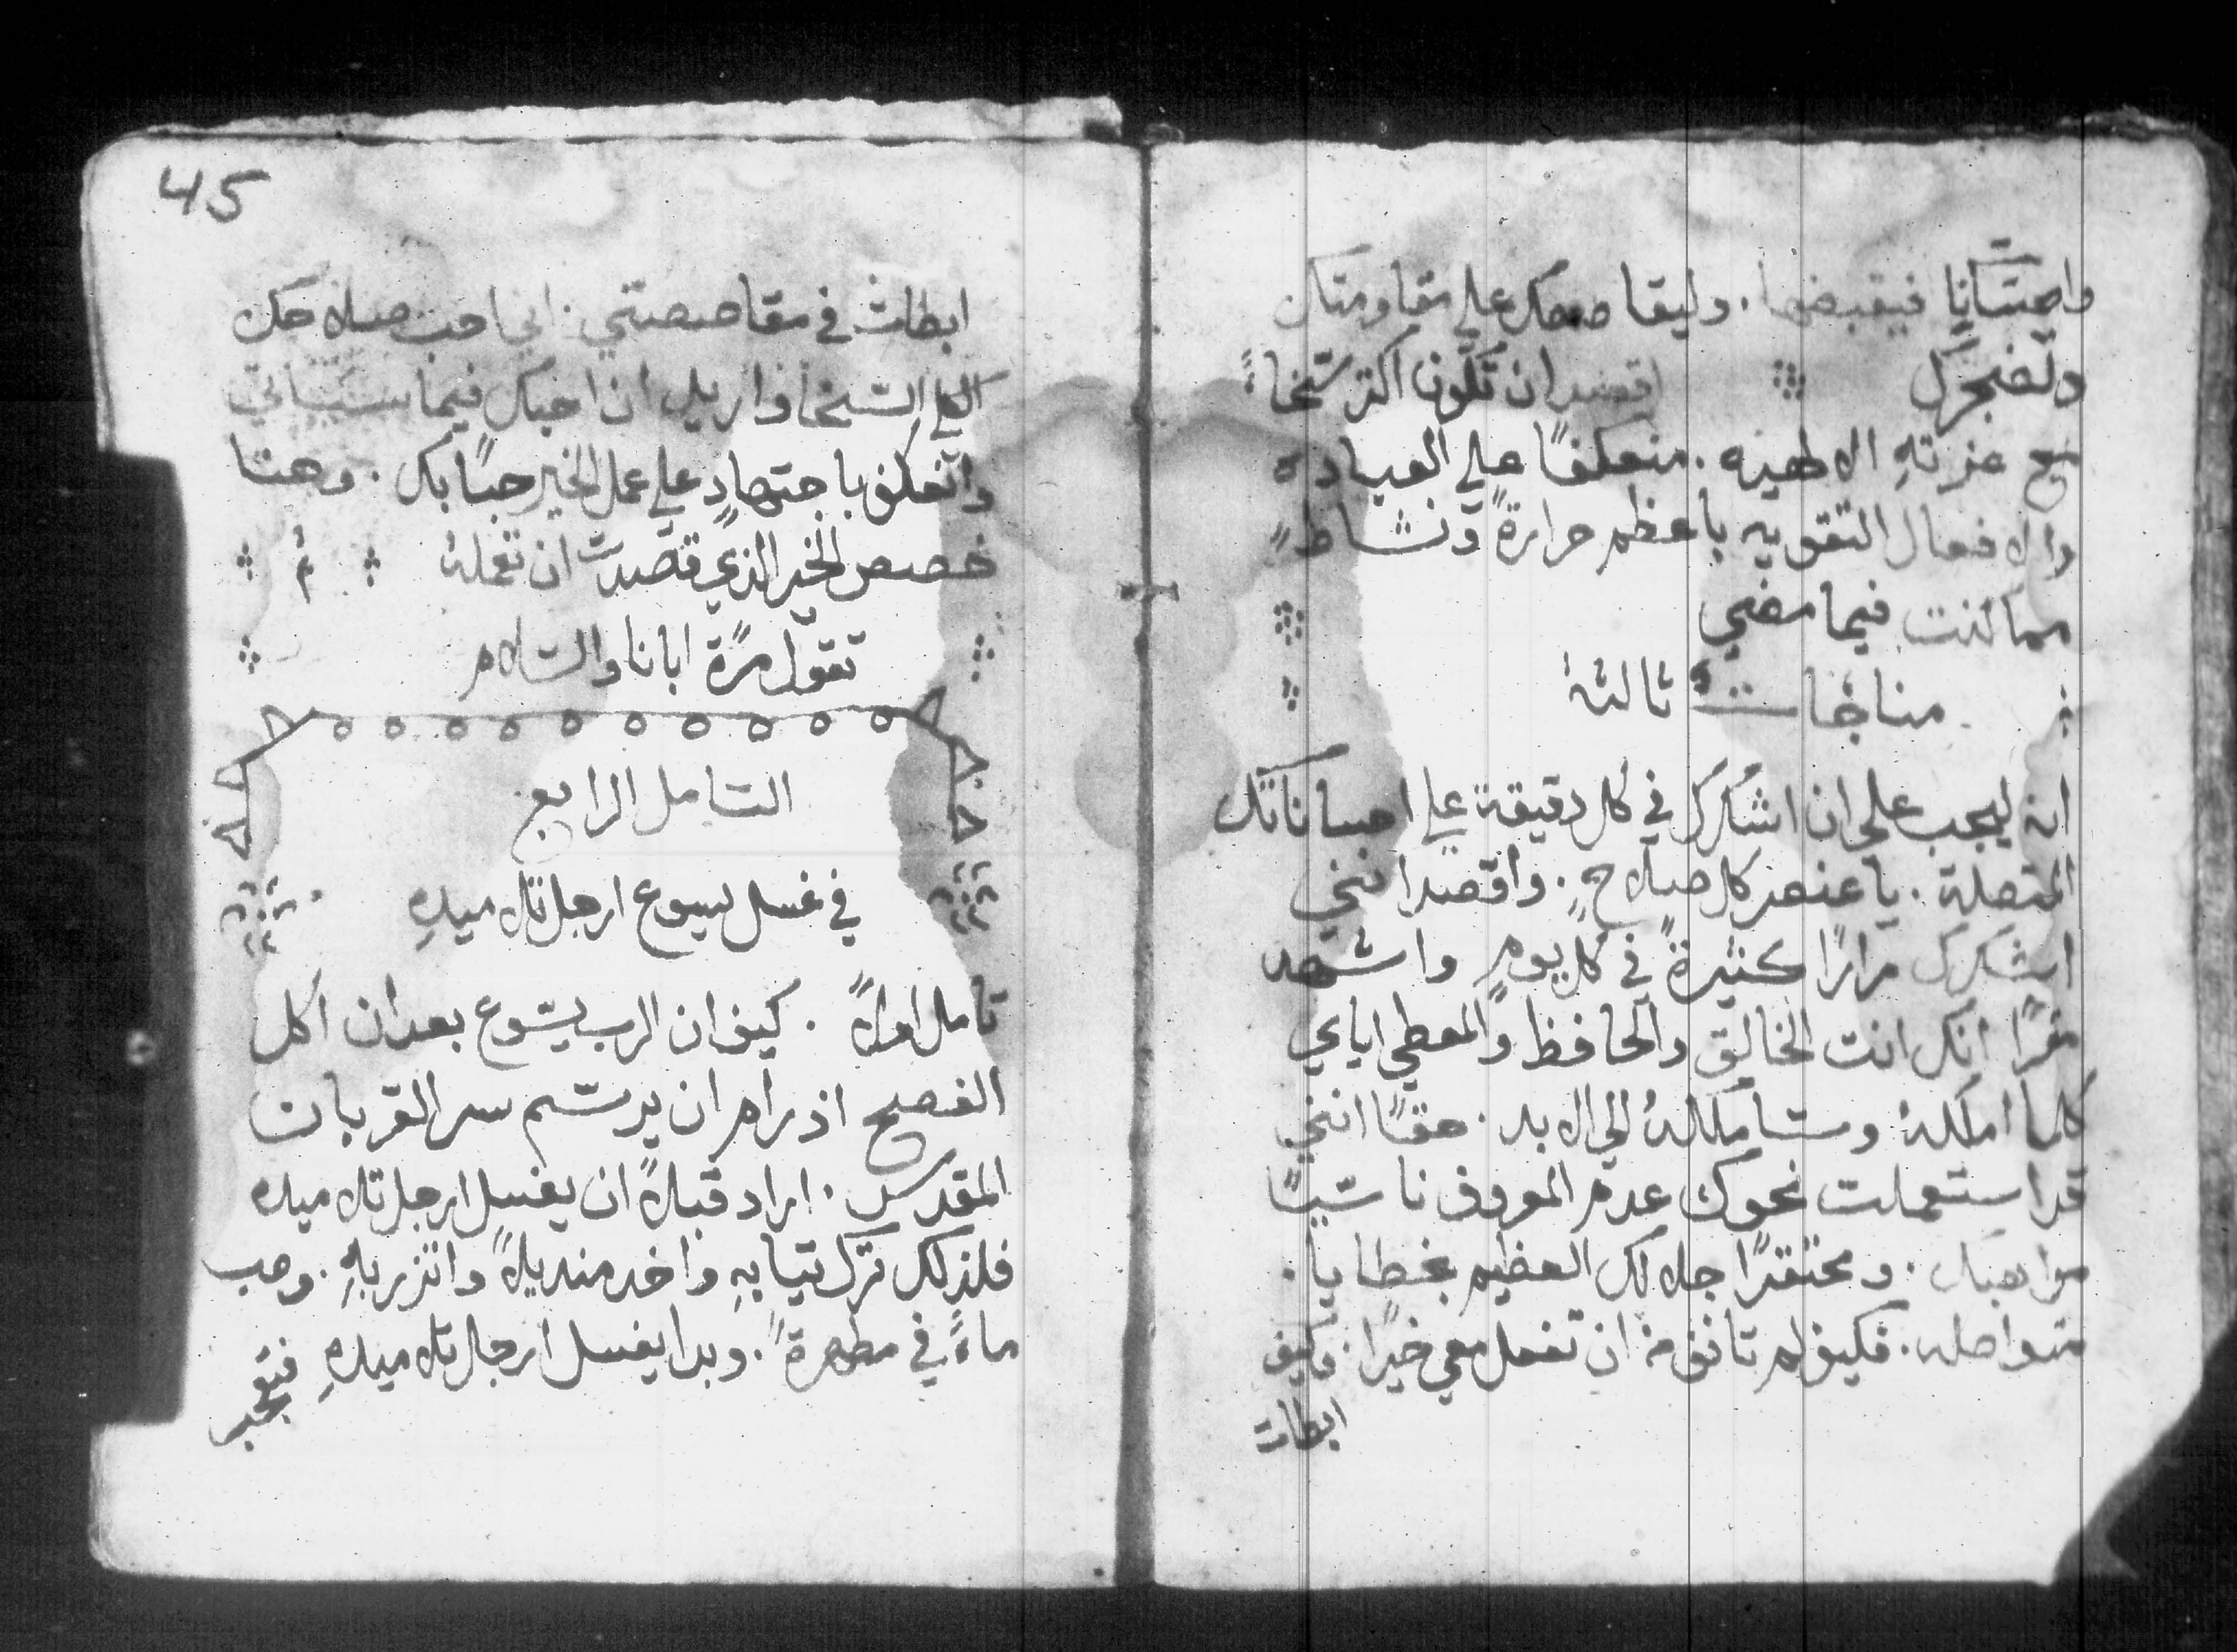 واحسانا فيقبضها. وليقا صصك علي مقاومتك
ولضجرك ۞ اقصد ان تكون اكتر سخاءً
مع عزته الالهيه. منعكفًا علي العباده
والافعال التقويه باعظم حرارةً ونشاطٍ
مما كنت فيما مضي
مناجات ثالثهٔ
انه ليجب علي ان اشكرك في كل دقيقة علي احساناتك
المتصلة. يا عنصر كل صلاحٍ. واقصد انني
اشكرك مرارًا كثيرةً في كل يومٍ واشهد
مقرًا انك انت الخالق والحافظ والمعطي اياي
كلما املكهُ وسأملكهُ الي الابد. حقًا انني
قد استعملت نحوك عدم المعروف ناسيًا
مواهبك. ومحتقرًا جلالك العظيم بخطايا.
متواصله. فكيف لم تانف من ان تفعل معي خيرًا. وكيف
ابطات
45
ابطات في مقاصصتي. اني احب صلاحك
الكلي السخا واريد ان احبك فيما سياتي
وانعكف باجتهادٍ علي عمل الخير حبًا بك. وهنا
خصص الخير الذي قصدت ان تعملهُ ثم
تقول مرةً ابانا والسلام
التامل الرابع
في غسل يسوع ارجل تلاميذهِ
تامل اولاً. كيف ان الرب يسوع بعد ان اكل
الفصح اذ رام ان يرسم سر القربان
المقدس. اراد قبلاً ان يغسل ارجل تلاميذه
فلذلك ترك تيابهِ واخد منديلاً واتزر بهِ. وصب
ماءً في مطهرةً. وبدا يغسل ارجل تلاميذهِ
فتعجب